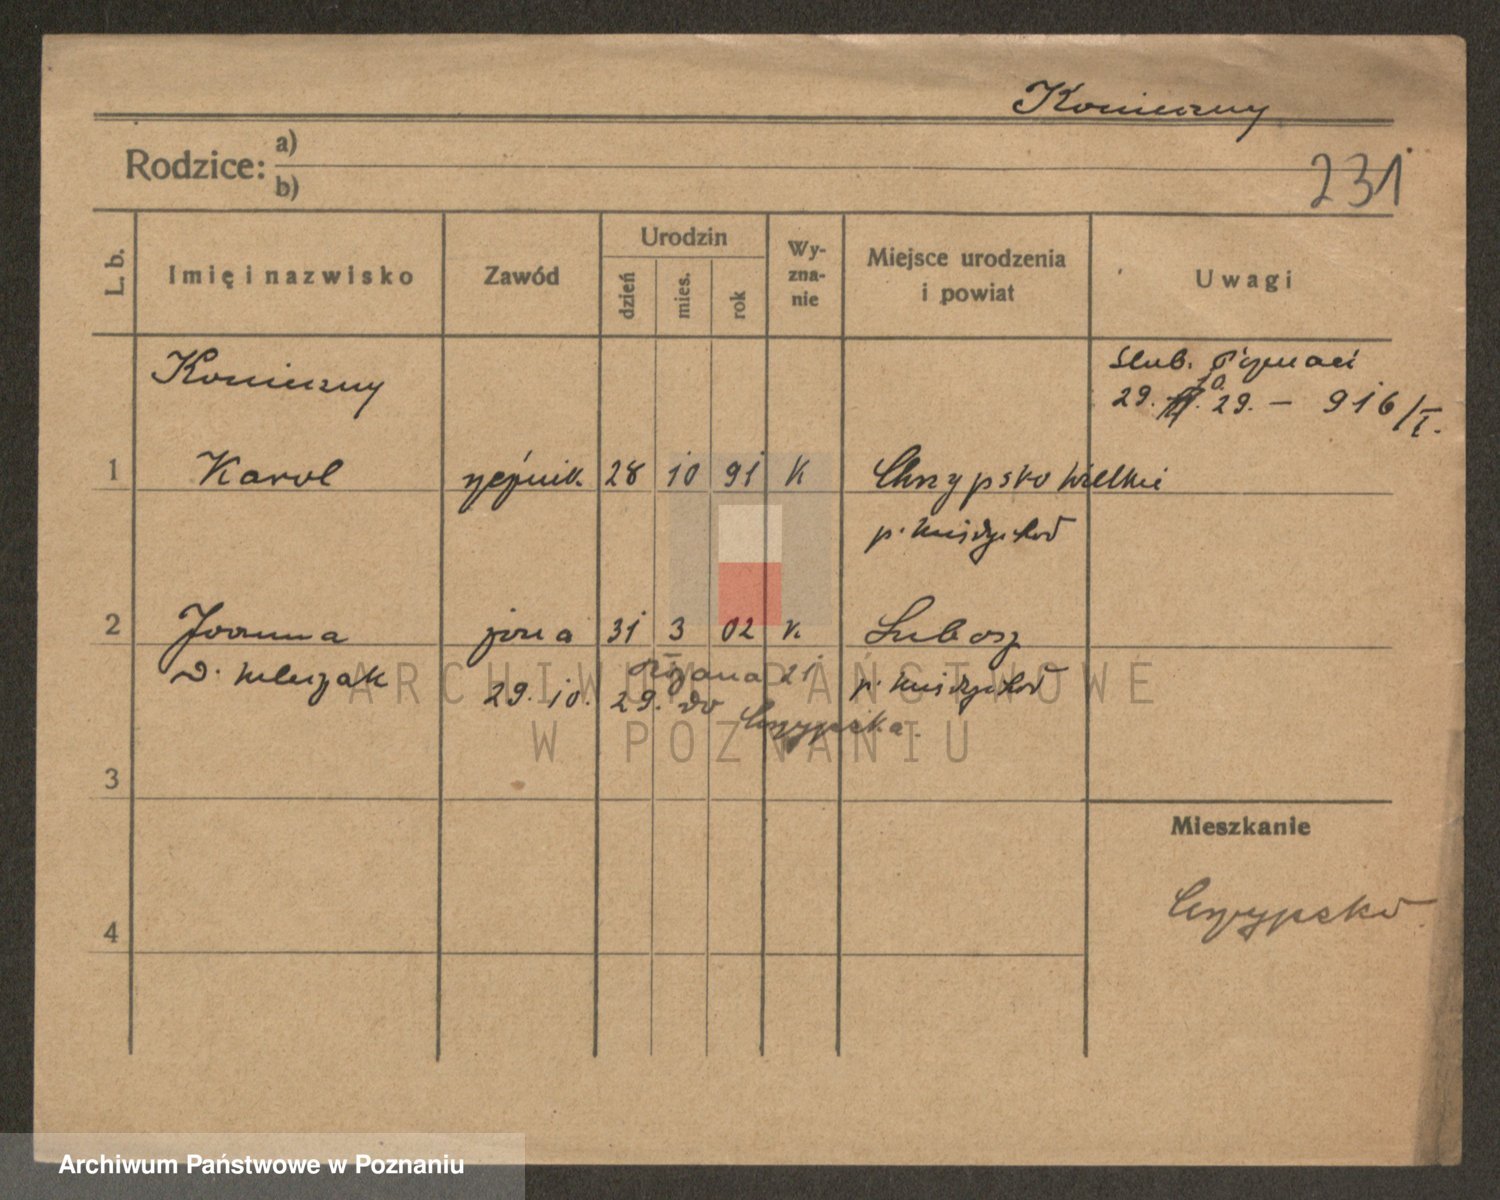 Konieczny
Rodzice: a)
b)
231
L. b.
Imię i nazwisko
Zawód
Urodzin
dzień
mies.
rok
Wy-
zna-
nie
Miejsce urodzenia
i powiat
Uwagi
Konieczny
Slub.
29. 10. 29. — 916/I.
1 Karol 28 10 91 K Chrzypsko Wielkie
p. Międzychod
2 Joanna żona 31 3 02 K. Lubosz
D. Różana 21 p. Międzychod
29. 10. 29. do Chrzypska.
3
Mieszkanie
Chrzypsko
4
ARCHIWUM PAŃSTWOWE
W POZNANIU
Archiwum Państwowe w Poznaniu